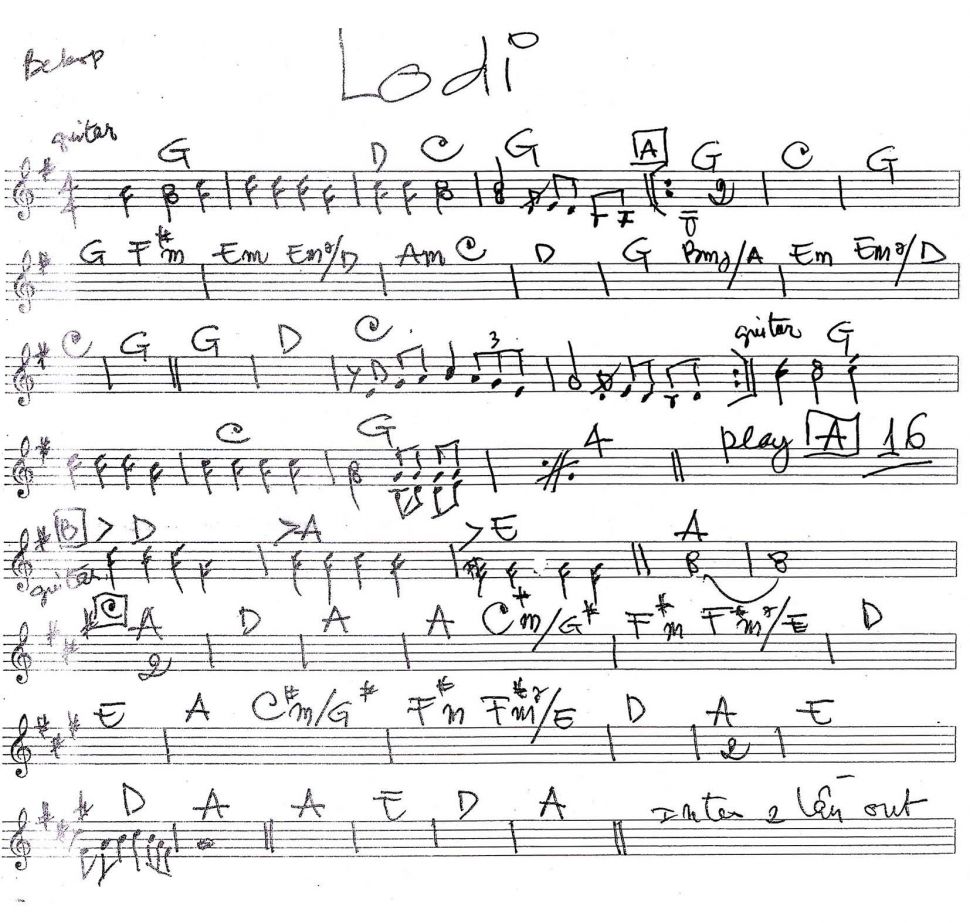 Lodi
guitar
G D C G A G C G
4
4
2
G F#m Em Em7/D Am C D G Bm7/A Em Em7/D
guitar
C G G D C G
3
C G 4 play A 16
B D A E A
guitar
C A D A A C#m/G# F#m F#m7/E D
2
E A C#m/G# F#m F#m7/E D A E
2
D A A E D A Inter 2 lần out